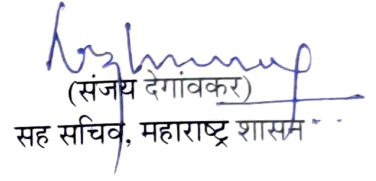 (संजय देगांवकर)
सह सचिव, महाराष्ट्र शासन